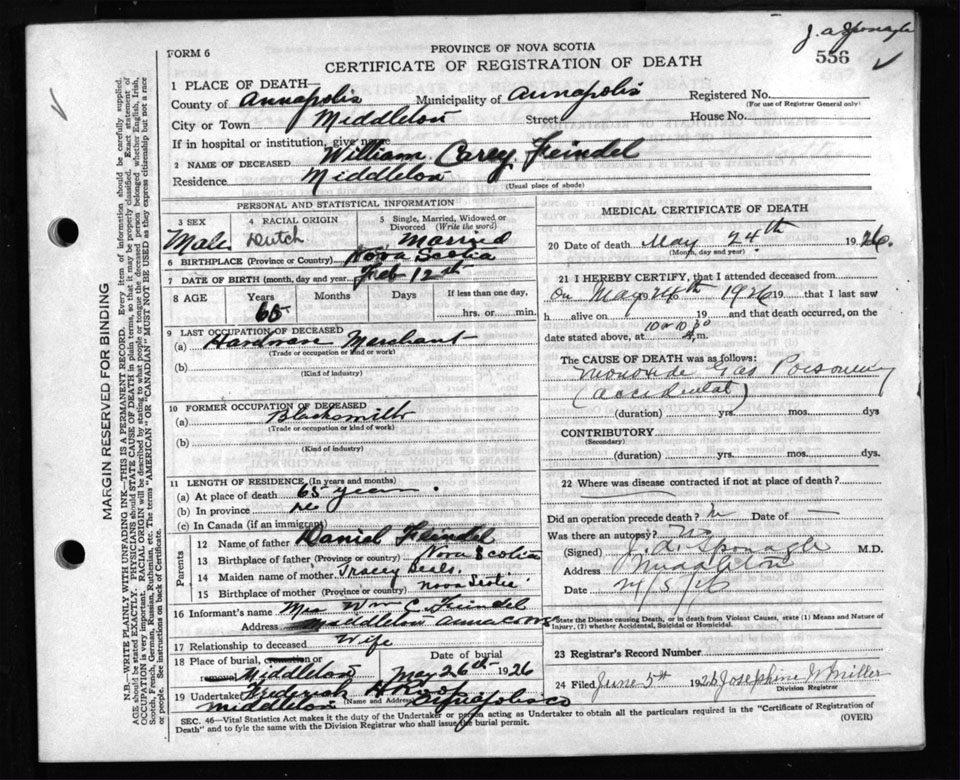 J. A. Sponagle
556
FORM 6
PROVINCE OF NOVA SCOTIA
CERTIFICATE OF REGISTRATION OF DEATH
MARGIN RESERVED FOR BINDING
N.B.—WRITE PLAINLY WITH UNFADING INK—THIS IS A PERMANENT RECORD. Every item of information should be carefully supplied.
AGE should be stated EXACTLY. PHYSICIANS should STATE CAUSE OF DEATH in plain terms, so that it may be properly classified. Exact statement of
OCCUPATION is very important. RACIAL ORIGIN will be described by stating to what people or tongue the deceased person belonged whether English, Irish,
Scotch, French, German, Russian, Ruthenian, etc. The terms "AMERICAN" OR "CANADIAN" MUST NOT BE USED as they express citizenship but not a race
or people. See instructions on back of Certificate.
1 PLACE OF DEATH—
County of Annapolis Municipality of Annapolis Registered No.
(For use of Registrar General only)
City or Town Middleton Street House No.
If in hospital or institution, give name
2 NAME OF DECEASED William Carey Feindel
Residence Middleton
(Usual place of abode)
PERSONAL AND STATISTICAL INFORMATION
3 SEX 4 RACIAL ORIGIN 5 Single, Married, Widowed or Divorced (Write the word)
Male Dutch Married
6 BIRTHPLACE (Province or Country) Nova Scotia
7 DATE OF BIRTH (month, day and year) Feb 12th
8 AGE Years Months Days If less than one day,
65 hrs. or min.
9 LAST OCCUPATION OF DECEASED
(a) Hardware Merchant
(Trade or occupation or kind or work)
(b)
(Kind of industry)
10 FORMER OCCUPATION OF DECEASED
(a) Blacksmith
(Trade or occupation or kind of work)
(b)
(Kind of industry)
11 LENGTH OF RESIDENCE, (In years and months)
(a) At place of death 65 years.
(b) In province
(c) In Canada (if an immigrant)
Parents
12 Name of father Daniel Feindel
13 Birthplace of father (Province or country) Nova Scotia
14 Maiden name of mother Tracey Beals.
15 Birthplace of mother (Province or country) Nova Scotia
16 Informant's name Mrs Wm C. Feindel
Address Middleton Anna Co
17 Relationship to deceased Wife
18 Place of burial, cremation or removal Date of burial
Middleton May 26th 1926
19 Undertaker Frederick
(Name and Address)
Middleton Annapolis Co
MEDICAL CERTIFICATE OF DEATH
20 Date of death May 24th 1926.
(Month, day and year)
21 I HEREBY CERTIFY, that I attended deceased from
On May 24th 1926 19 that I last saw
h alive on 19 and that death occurred, on
date stated above, at 10 or 10 30 m.
The CAUSE OF DEATH was as follows:
Monoxide Gas Poisoning
(accidental)
(duration) yrs. mos. dys
CONTRIBUTORY
(Secondary)
(duration) yrs. mos. dys.
22 Where was disease contracted if not at place of death?
Did an operation precede death? Date of —
Was there an autopsy? No
(Signed) J. A. Sponagle M.D.
Address Middleton
State the Disease causing Death, or in death from Violent Causes, state (1) Means and Nature of
Injury, (2) whether Accidental, Suicidal or Homicidal.
23 Registrar's Record Number
24 Filed June 5th 1926 Josephine W Miller
Division Registrar
SEC. 46—Vital Statistics Act makes it the duty of the Undertaker or person acting as Undertaker to obtain all the particulars required in the "Certificate of Registration of
Death" and to fyle the same with the Division Registrar who shall issue the burial permit.
(OVER)